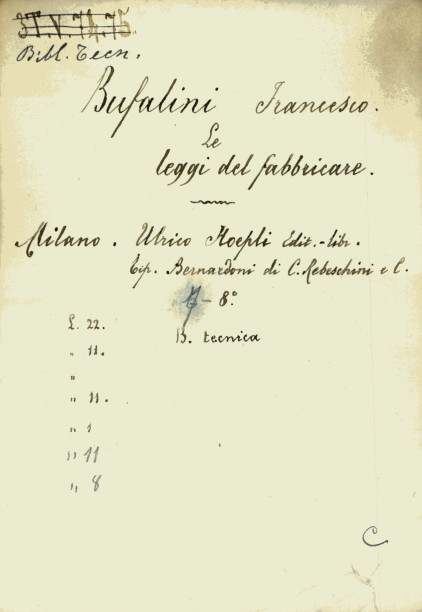 3T.V.74.75.
Bibl. Tecn.
Bufalini Francesco.
Le
leggi del fabbricare.
Milano. Ulrico Hoepli Edit.-libr.
Tip. Bernardoni di C. Rebeschini e C.
- 8°
B. tecnica
L. 22.
" 11.
"
" 11.
" 1
" 11
" 8
C